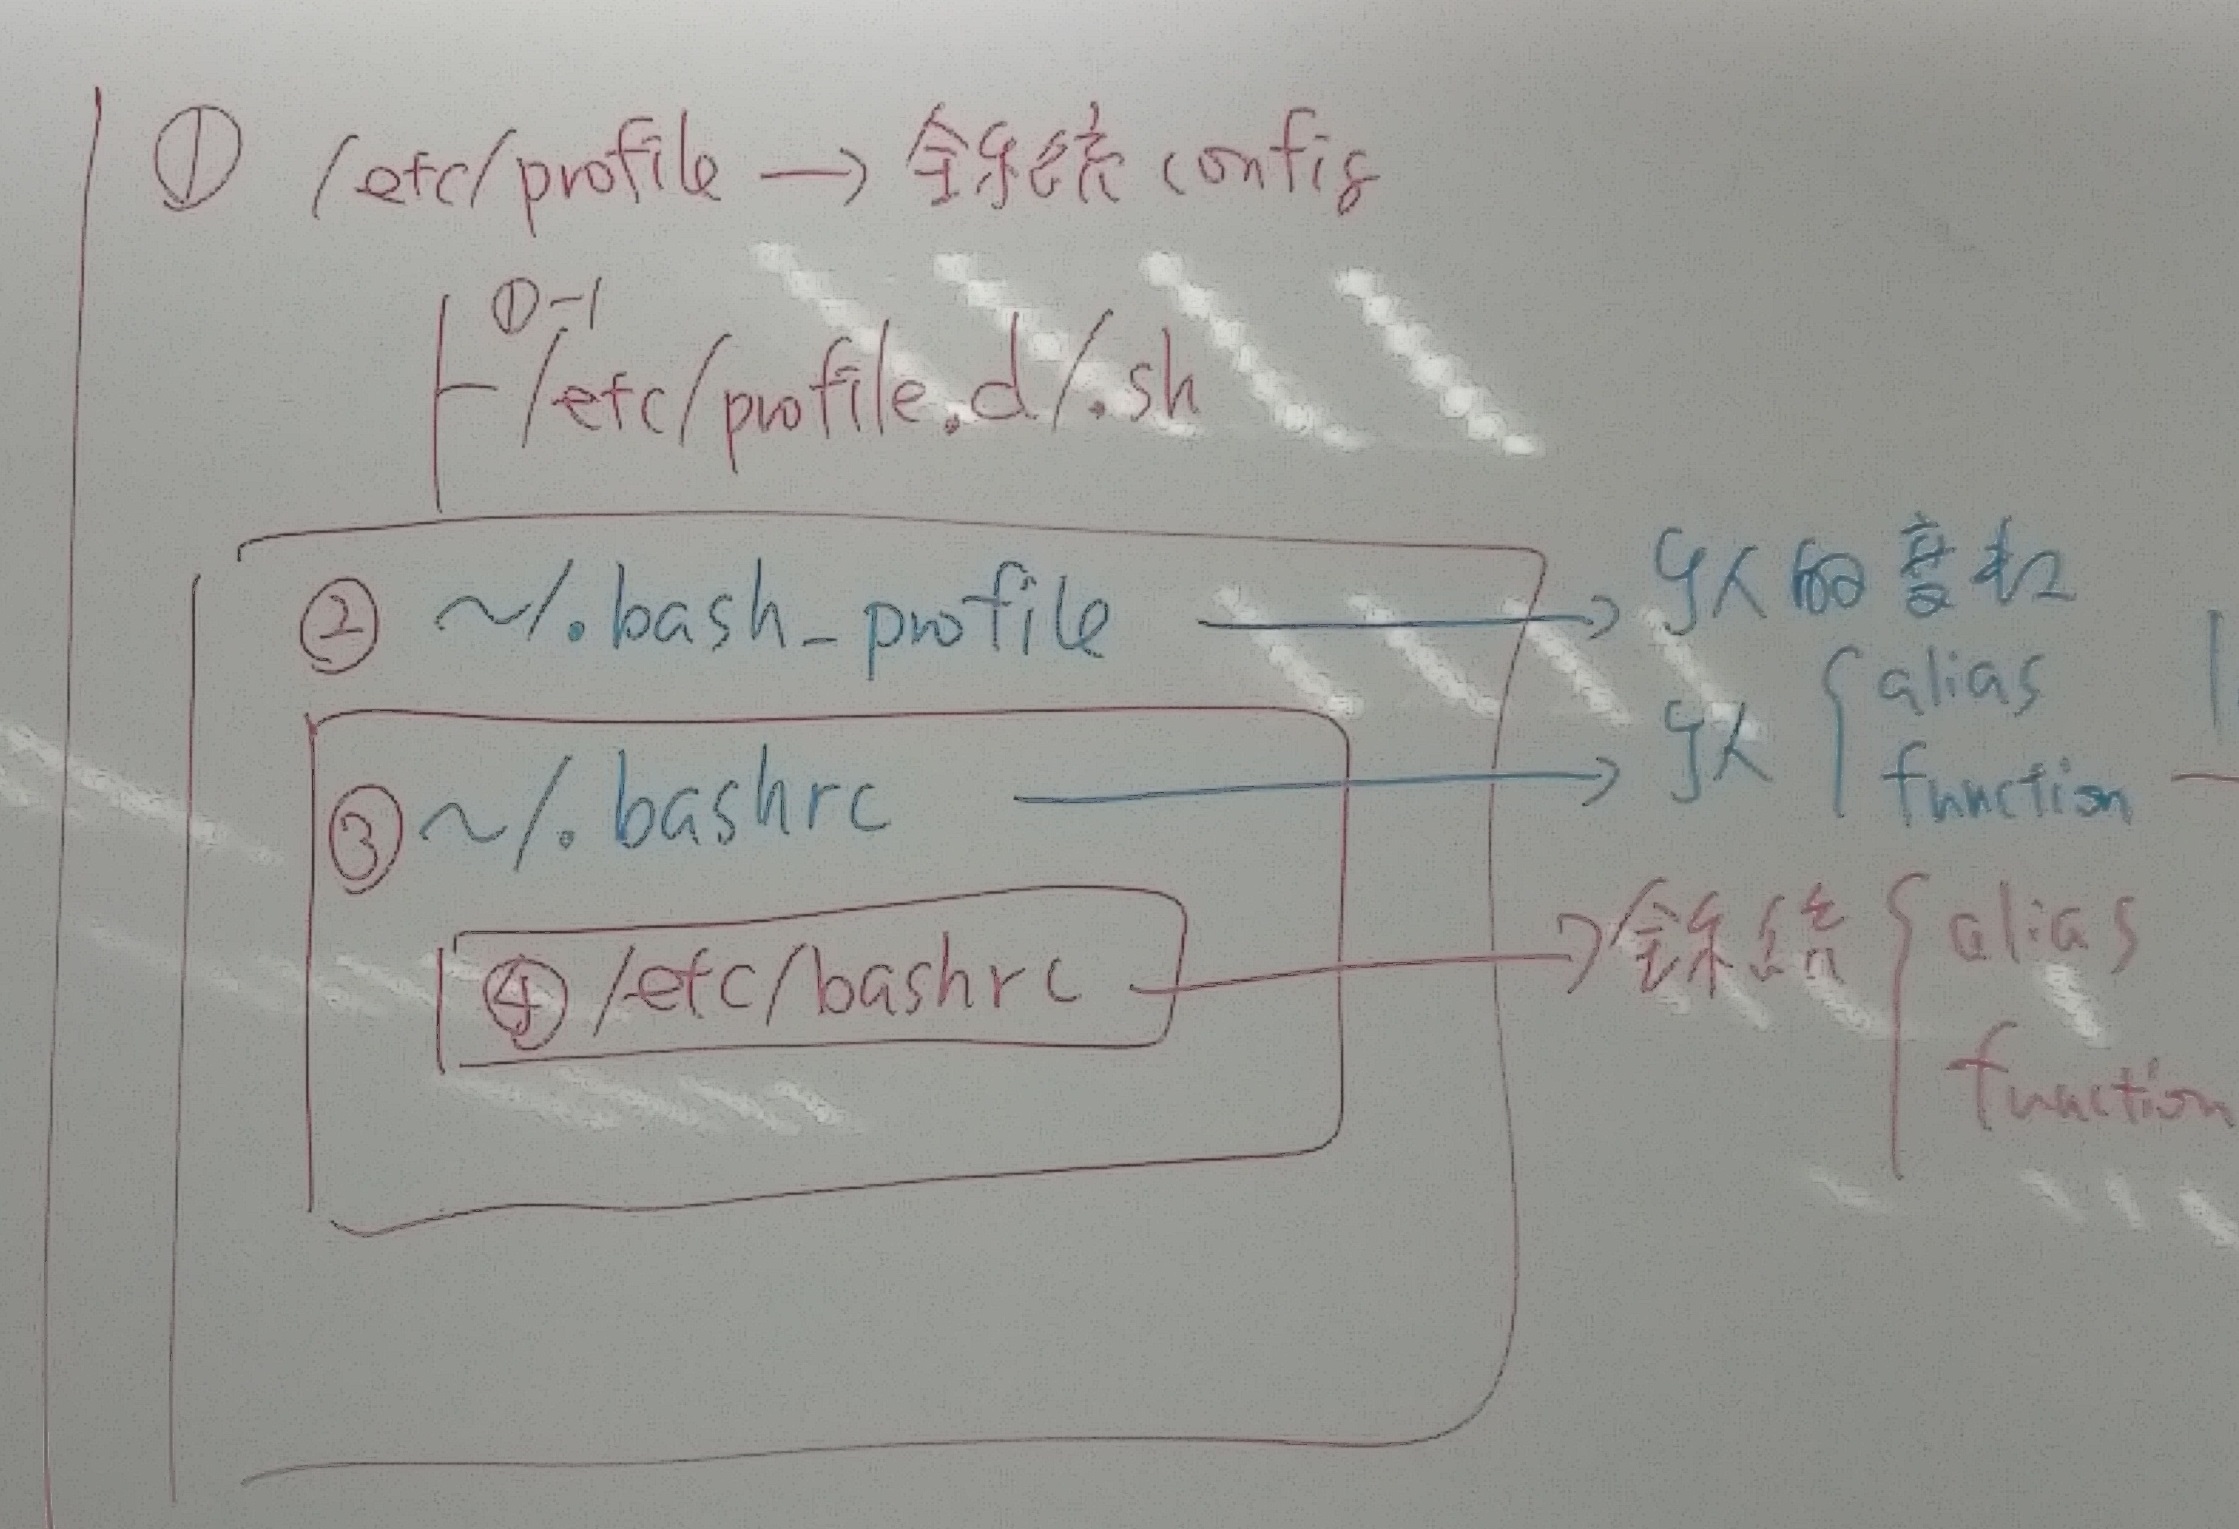 ① /etc/profile → 全系統 config
①-1
/etc/profile.d/.sh
② ~/.bash_profile → 个人的变数
③ ~/.bashrc → 个人 { alias
function
④ /etc/bashrc → 全系統 { alias
function